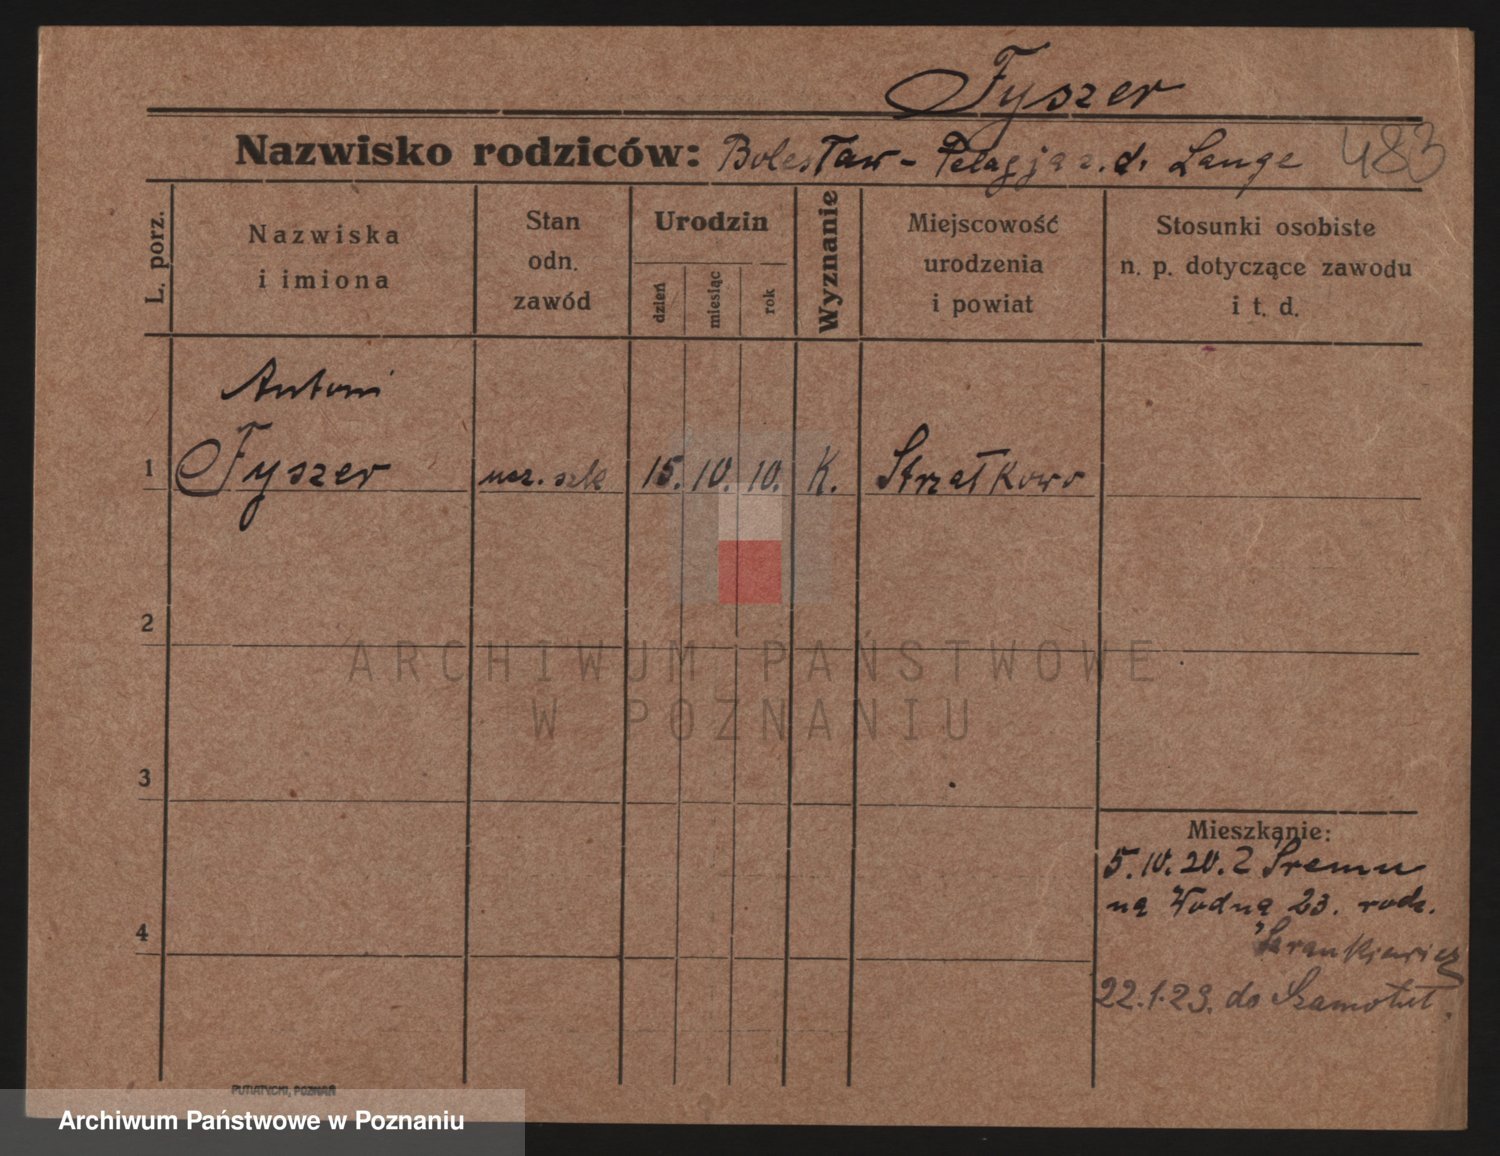 Fyszer
Nazwisko rodziców: Bolesław - Pelagja z. d. Lange 483
L. porz.
Nazwiska
i imiona
Stan
odn.
zawód
Urodzin
dzień
miesiąc
rok
Wyznanie
Miejscowość
urodzenia
i powiat
Stosunki osobiste
n. p. dotyczące zawodu
i t. d.
Antoni
1 Fyszer ucz. szk 15. 10. 10. K. Strzałkowo
2
ARCHIWUM PAŃSTWOWE
W POZNANIU
3
Mieszkanie:
5.10.20. Z Śremu
na Wodną 23. rodz.
4
22.1.23. do Szamotuł.
PUTIATYCKI, POZNAŃ
Archiwum Państwowe w Poznaniu